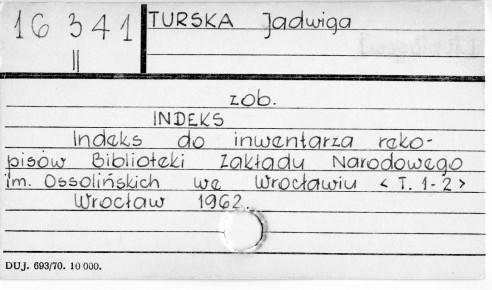 16 341
II
TURSKA Jadwiga
zob.
INDEKS
Indeks do inwentarza ręko-
pisów Biblioteki Zakładu Narodowego
im. Ossolińskich we Wrocławiu < T. 1-2 >
Wrocław 1962.
DUJ. 693/70. 10 000.